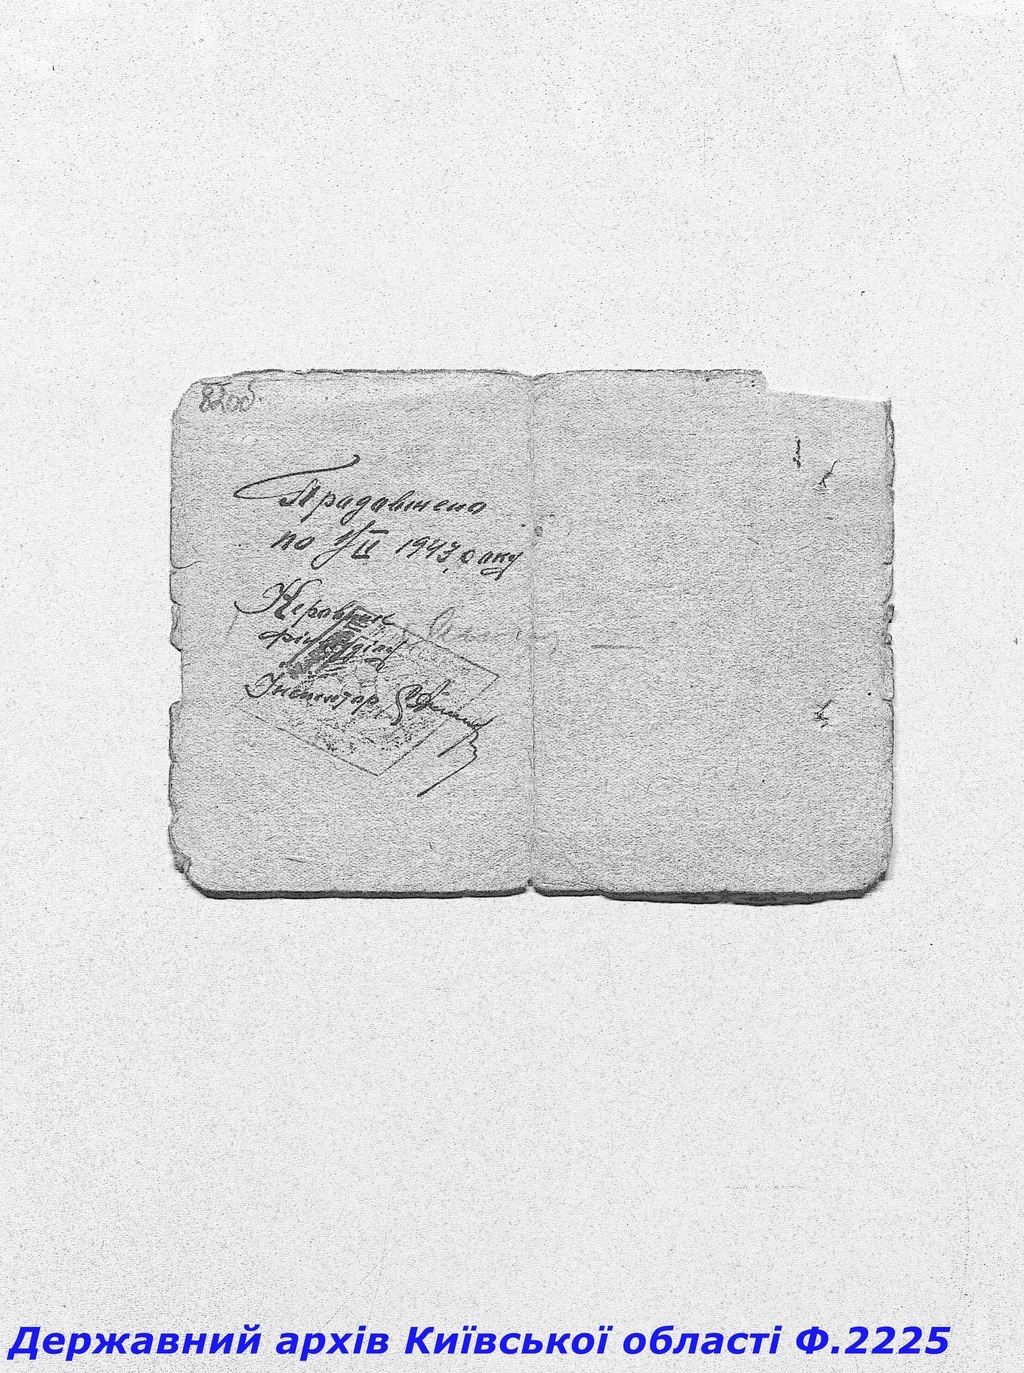 820об
Прадавжено
по 1/II 1943 року
Керавник
фінвідділу
Інспектор
Державний архів Київської області Ф.2225